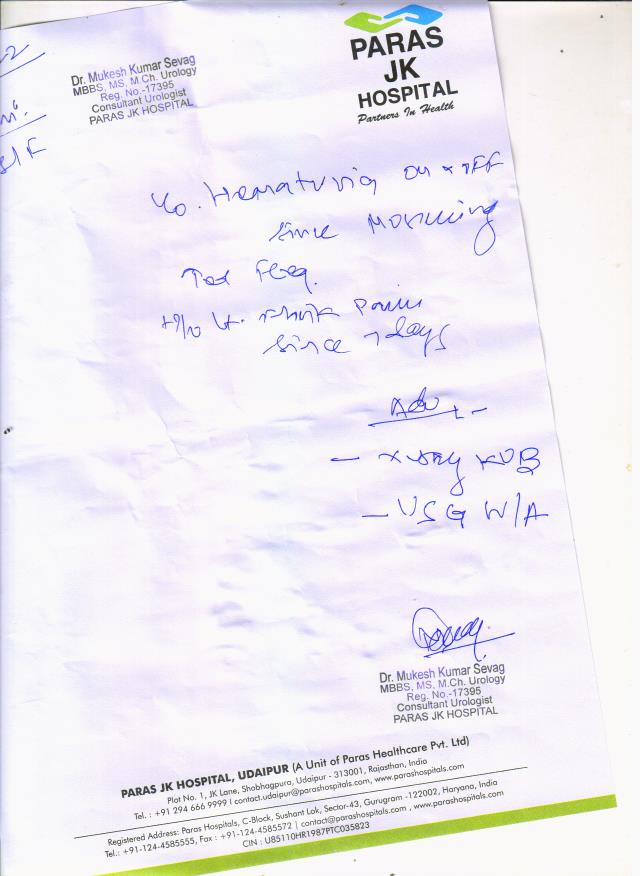 PARAS
JK
HOSPITAL
Partners In Health
Dr. Mukesh Kumar Sevag
MBBS, MS, M.Ch. Urology
Reg. No.-17395
Consultant Urologist
PARAS JK HOSPITAL
Hematuria on & off
since Morning
Freq.
H/o Lt. flank pain
since 7 days
Adv
- X-ray KUB
- USG W/A
Dr. Mukesh Kumar Sevag
MBBS, MS, M.Ch. Urology
Reg. No.-17395
Consultant Urologist
PARAS JK HOSPITAL
PARAS JK HOSPITAL, UDAIPUR (A Unit of Paras Healthcare Pvt. Ltd)
Plot No. 1, JK Lane, Shobhagpura, Udaipur - 313001, Rajasthan, India
Tel. : +91 294 666 9999 I contact.udaipur@parashospitals.com, www.parashospitals.com
Registered Address: Paras Hospitals, C-Block, Sushant Lok, Sector-43, Gurugram -122002, Haryana, India
Tel.: +91-124-4585555, Fax : +91-124-4585572 | contact@parashospitals.com , www.parashospitals.com
CIN : U85110HR1987PTC035823